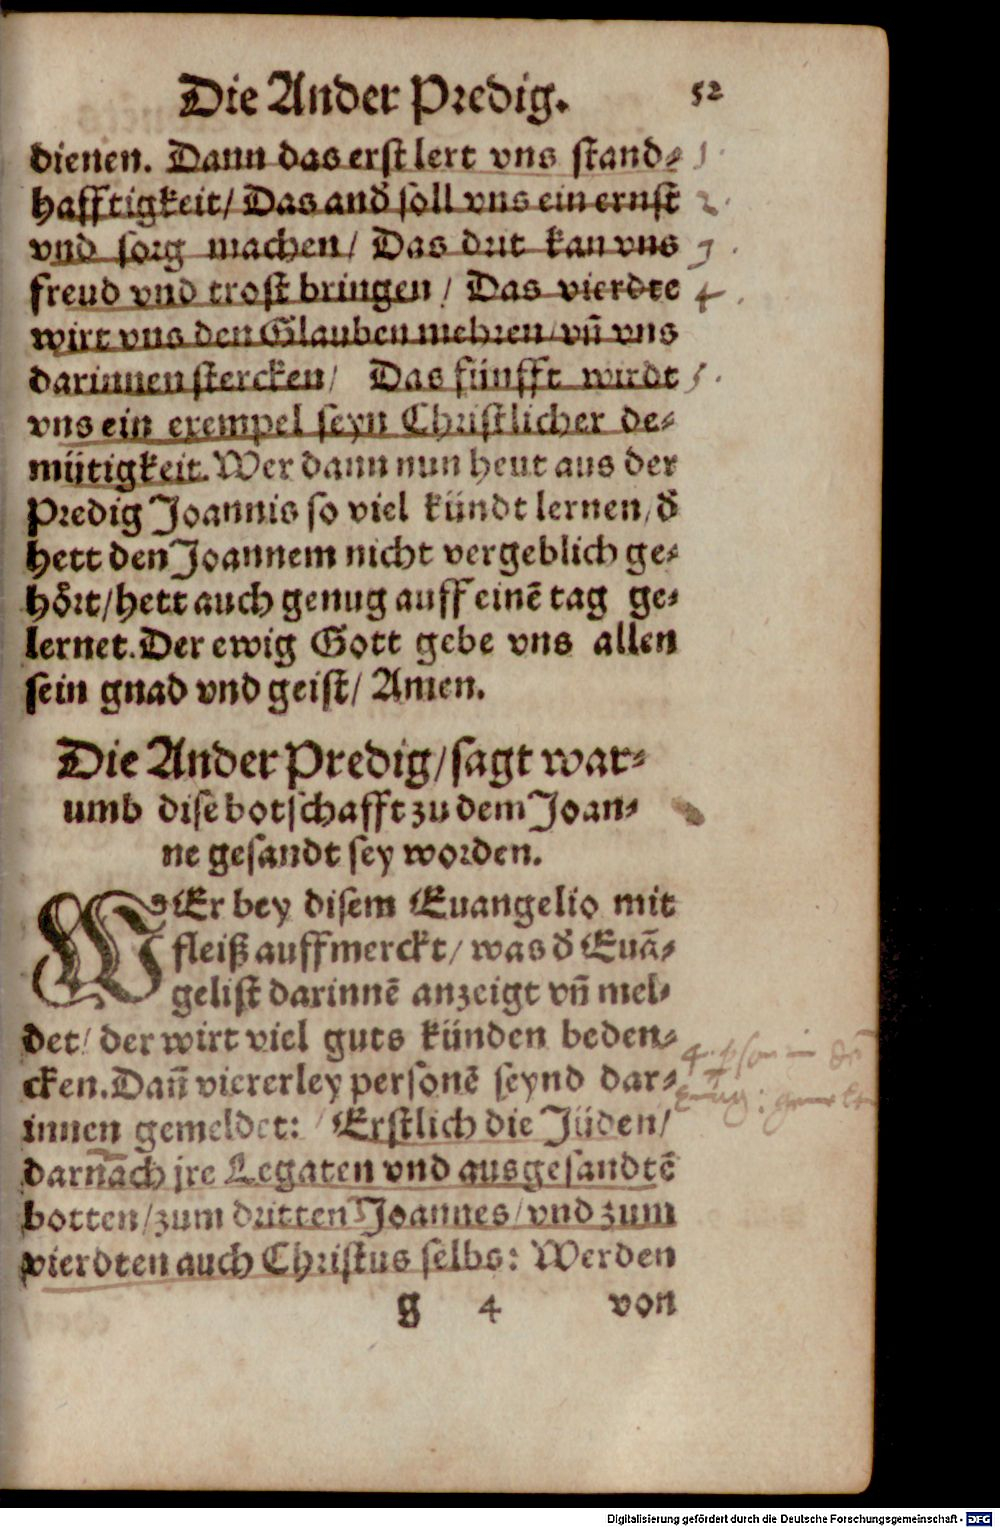 Die Ander Predig. 52
dienen. Dann das erst lert vns stand⸗ 1.
hafftigkeit/ Das and̄ soll vns ein ernst 2.
vnd sorg machen/ Das drit kan vns 3.
freud vnd trost bringen/ Das vierdte 4.
wirt vns den Glauben mehren/vn̄ vns
darinnen stercken/ Das fünfft wirdt 5.
vns ein exempel seyn Christlicher de⸗
mütigkeit. Wer dann nun heut aus der
Predig Joannis so viel kündt lernen/d̄
hett den Joannem nicht vergeblich ge⸗
hört/hett auch genug auff einē tag ge⸗
lernet. Der ewig Gott gebe vns allen
sein gnad vnd geist/ Amen.
Die Ander Predig/sagt war⸗
umb dise botschafft zu dem Joan⸗
ne gesandt sey worden.
WEr bey disem Euangelio mit
fleiß auffmerckt/ was d̄ Euā⸗
gelist darinnē anzeigt vn̄ mel⸗
det/ der wirt viel guts künden beden⸗
cken. Dan̄ viererley personē seynd dar⸗
innen gemeldet: Erstlich die Jüden/
darnach jre Legaten vnd ausgesandtē
botten/zum dritten Joannes/vnd zum
vierdten auch Christus selbs: Werden
g 4 von
Digitalisierung gefördert durch die Deutsche Forschungsgemeinschaft - DFG